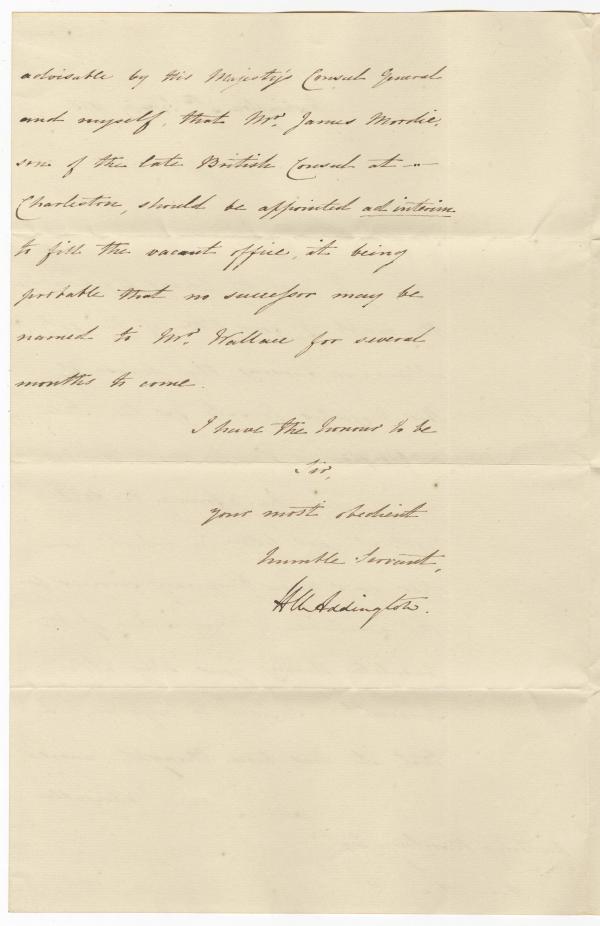 advisable by His Majesty's Consul General
and myself, that Mr. James Moodie,
son of the late British Consul at —
Charleston, should be appointed ad interim
to fill the vacant office, it being
probable that no successor may be
named to Mr. Wallace for several
months to come.
I have the honour to be
Sir,
your most obedient
humble Servant,
H. U. Addington.